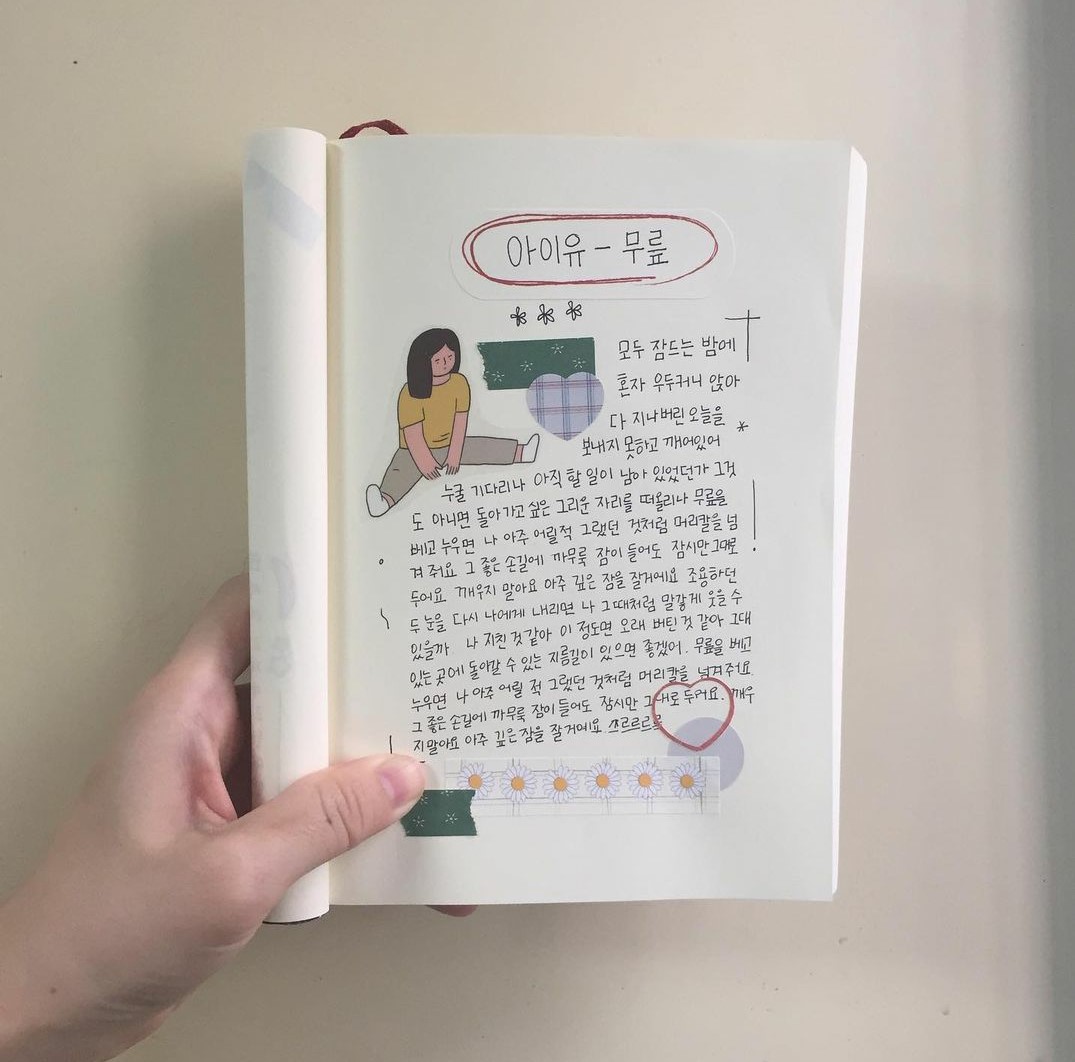 아이유 - 무릎
모두 잠드는 밤에
혼자 우두커니 앉아
다 지나버린 오늘을
보내지 못하고 깨어있어
누굴 기다리나 아직 할 일이 남아 있었던가 그것
도 아니면 돌아가고 싶은 그리운 자리를 떠올리나 무릎을
베고 누우면 나 아주 어릴적 그랬던 것처럼 머리칼을 넘
겨 줘요 그 좋은 손길에 까무룩 잠이 들어도 잠시만 그대로
두어요 깨우지 말아요 아주 깊은 잠을 잘거에요 조용하던
두 눈을 다시 나에게 내리면 나 그때처럼 말갛게 웃을 수
있을까 나 지친 것 같아 이 정도면 오래 버틴 것 같아 그대
있는 곳에 돌아갈 수 있는 지름길이 있으면 좋겠어. 무릎을 베고
누우면 나 아주 어릴 적 그랬던 것처럼 머리칼을 넘겨줘요
그 좋은 손길에 까무룩 잠이 들어도 잠시만 그대로 두어요. 깨우
지 말아요 아주 깊은 잠을 잘거에요. 쓰르르르륵